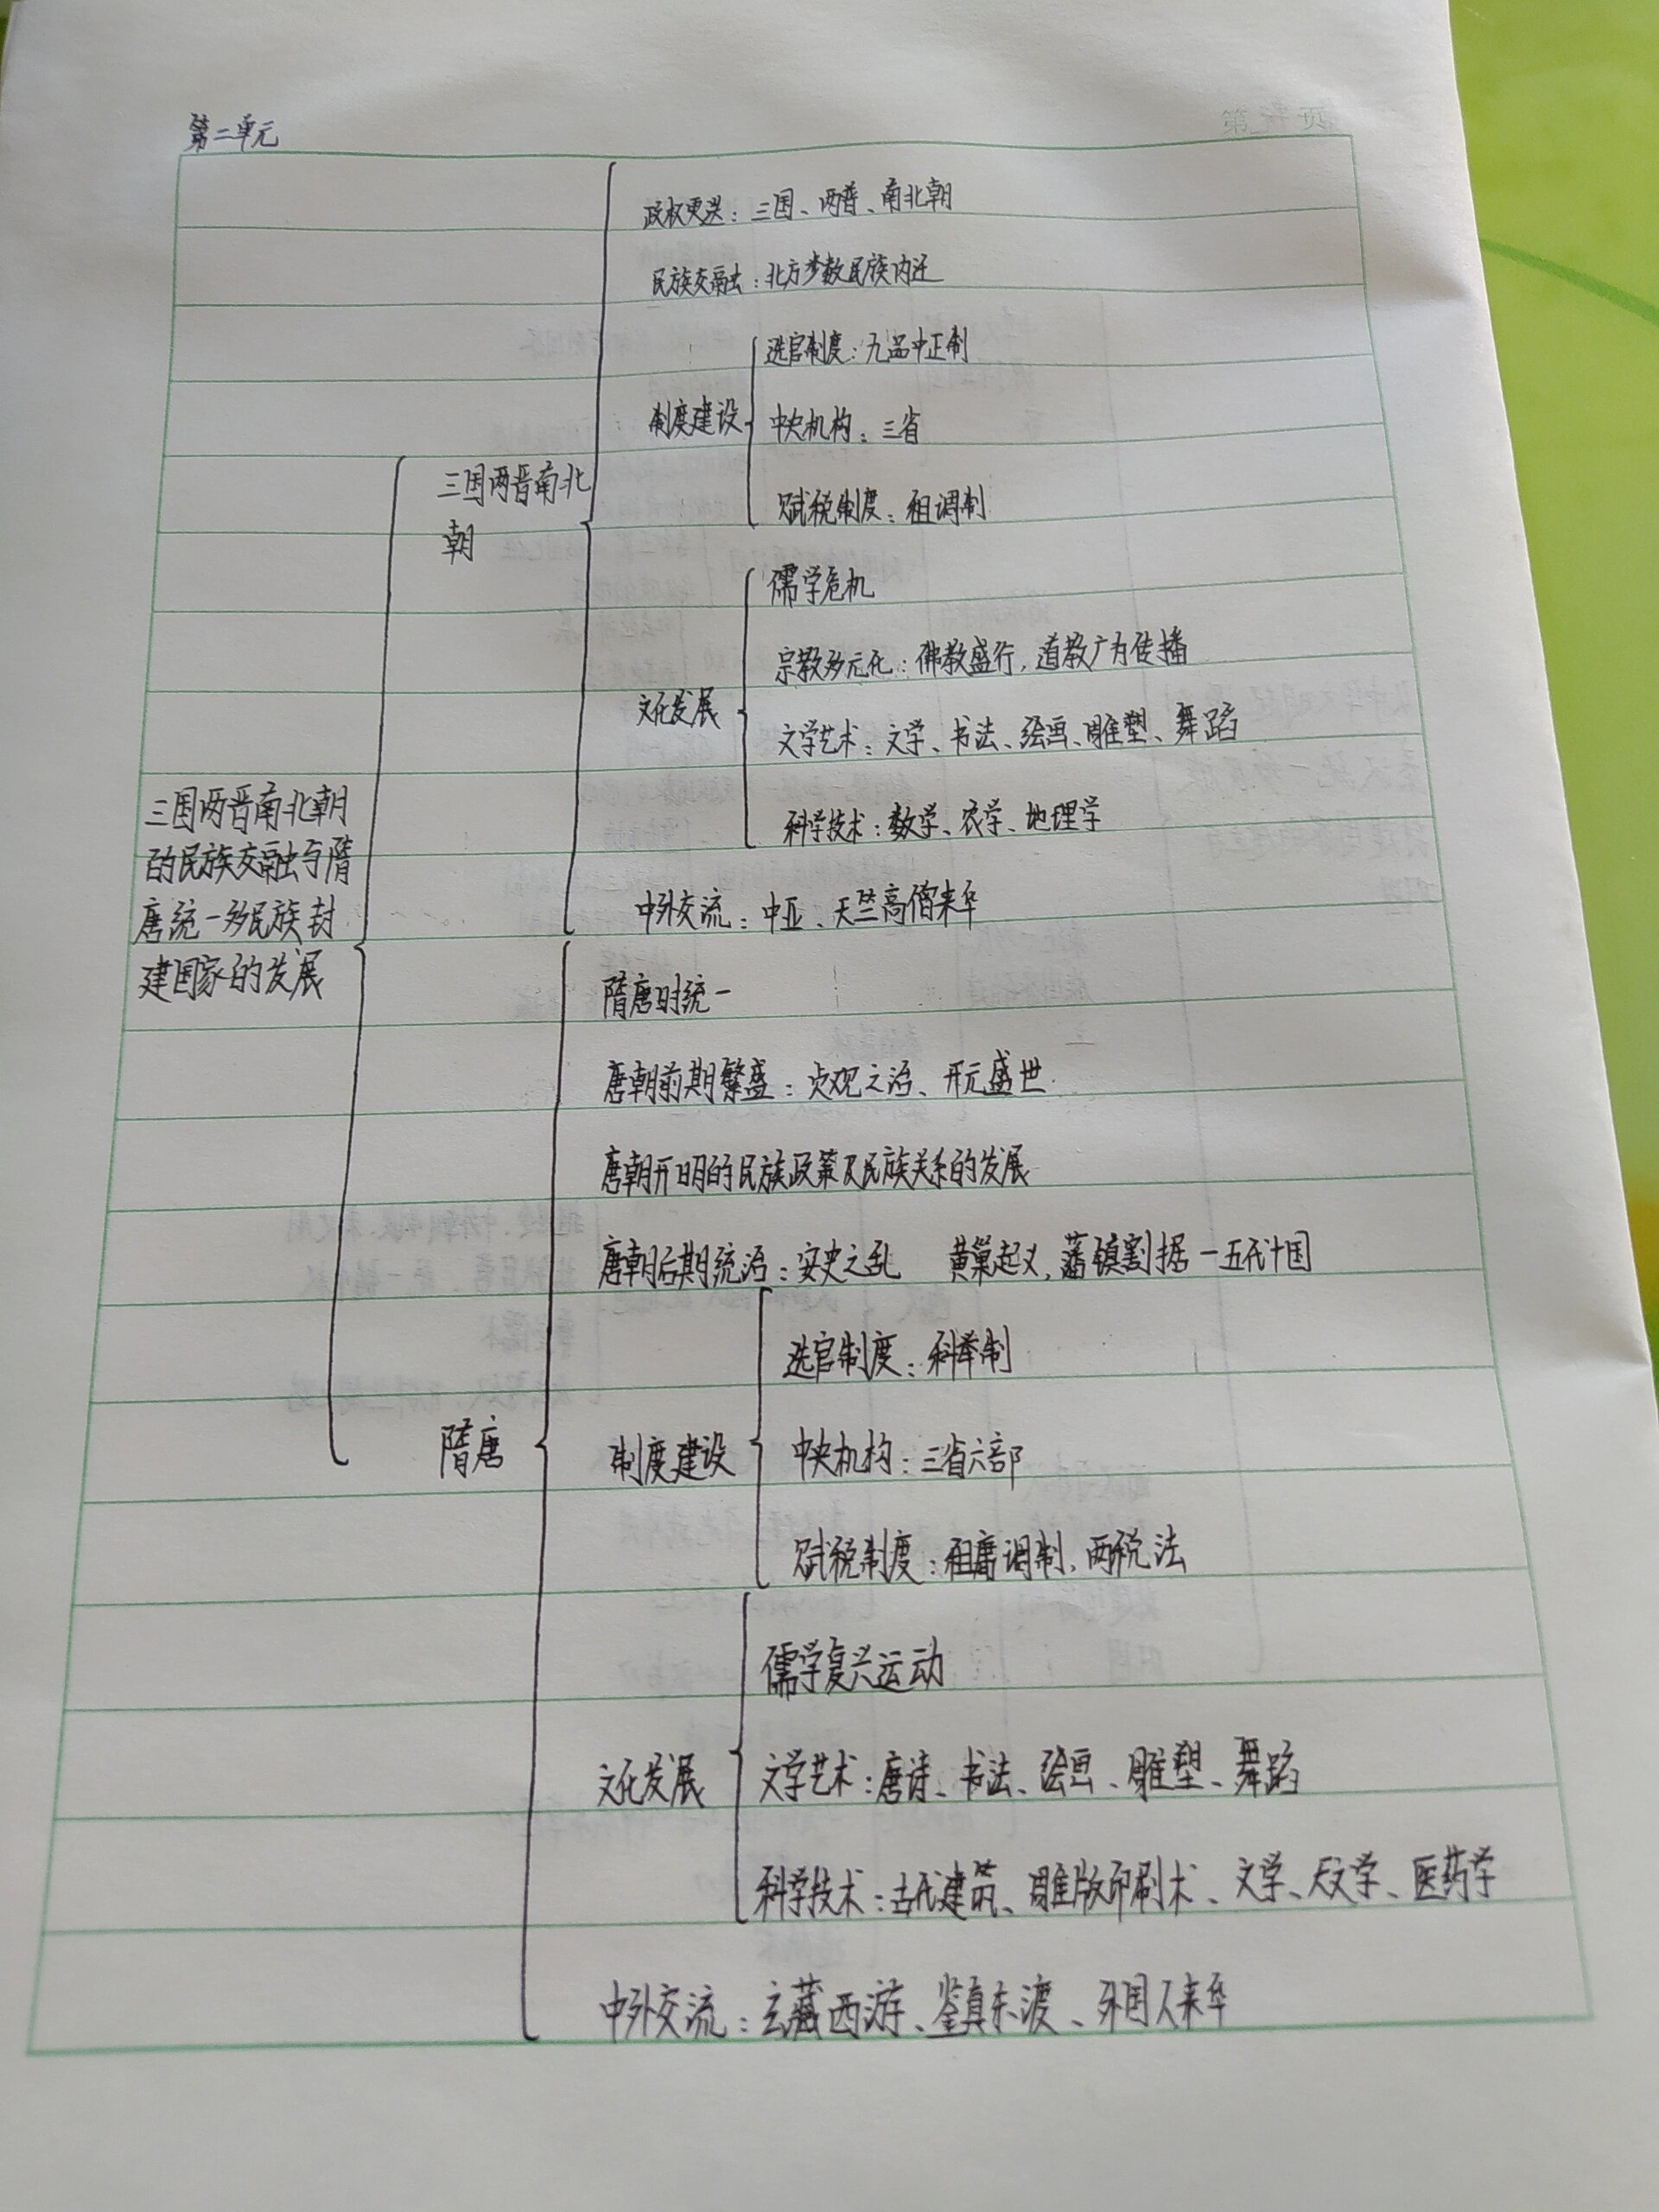 第二单元
政权更迭：三国、两晋、南北朝
民族交融：北方少数民族内迁
选官制度：九品中正制
制度建设
中央机构：三省
赋税制度：租调制
三国两晋南北
朝
儒学危机
宗教多元化：佛教盛行，道教广为传播
文化发展
文学艺术：文学、书法、绘画、雕塑、舞蹈
科学技术：数学、农学、地理学
中外交流：中亚、天竺高僧来华
三国两晋南北朝
的民族交融与隋
唐统一多民族封
建国家的发展
隋唐时统一
唐朝前期繁盛：贞观之治、开元盛世
唐朝开明的民族政策及民族关系的发展
唐朝后期统治：安史之乱 黄巢起义，藩镇割据－五代十国
隋唐
选官制度：科举制
制度建设
中央机构：三省六部
赋税制度：租庸调制，两税法
儒学复兴运动
文化发展
文学艺术：唐诗、书法、绘画、雕塑、舞蹈
科学技术：古代建筑、雕版印刷术、文学、天文学、医药学
中外交流：玄藏西游、鉴真东渡、外国人来华